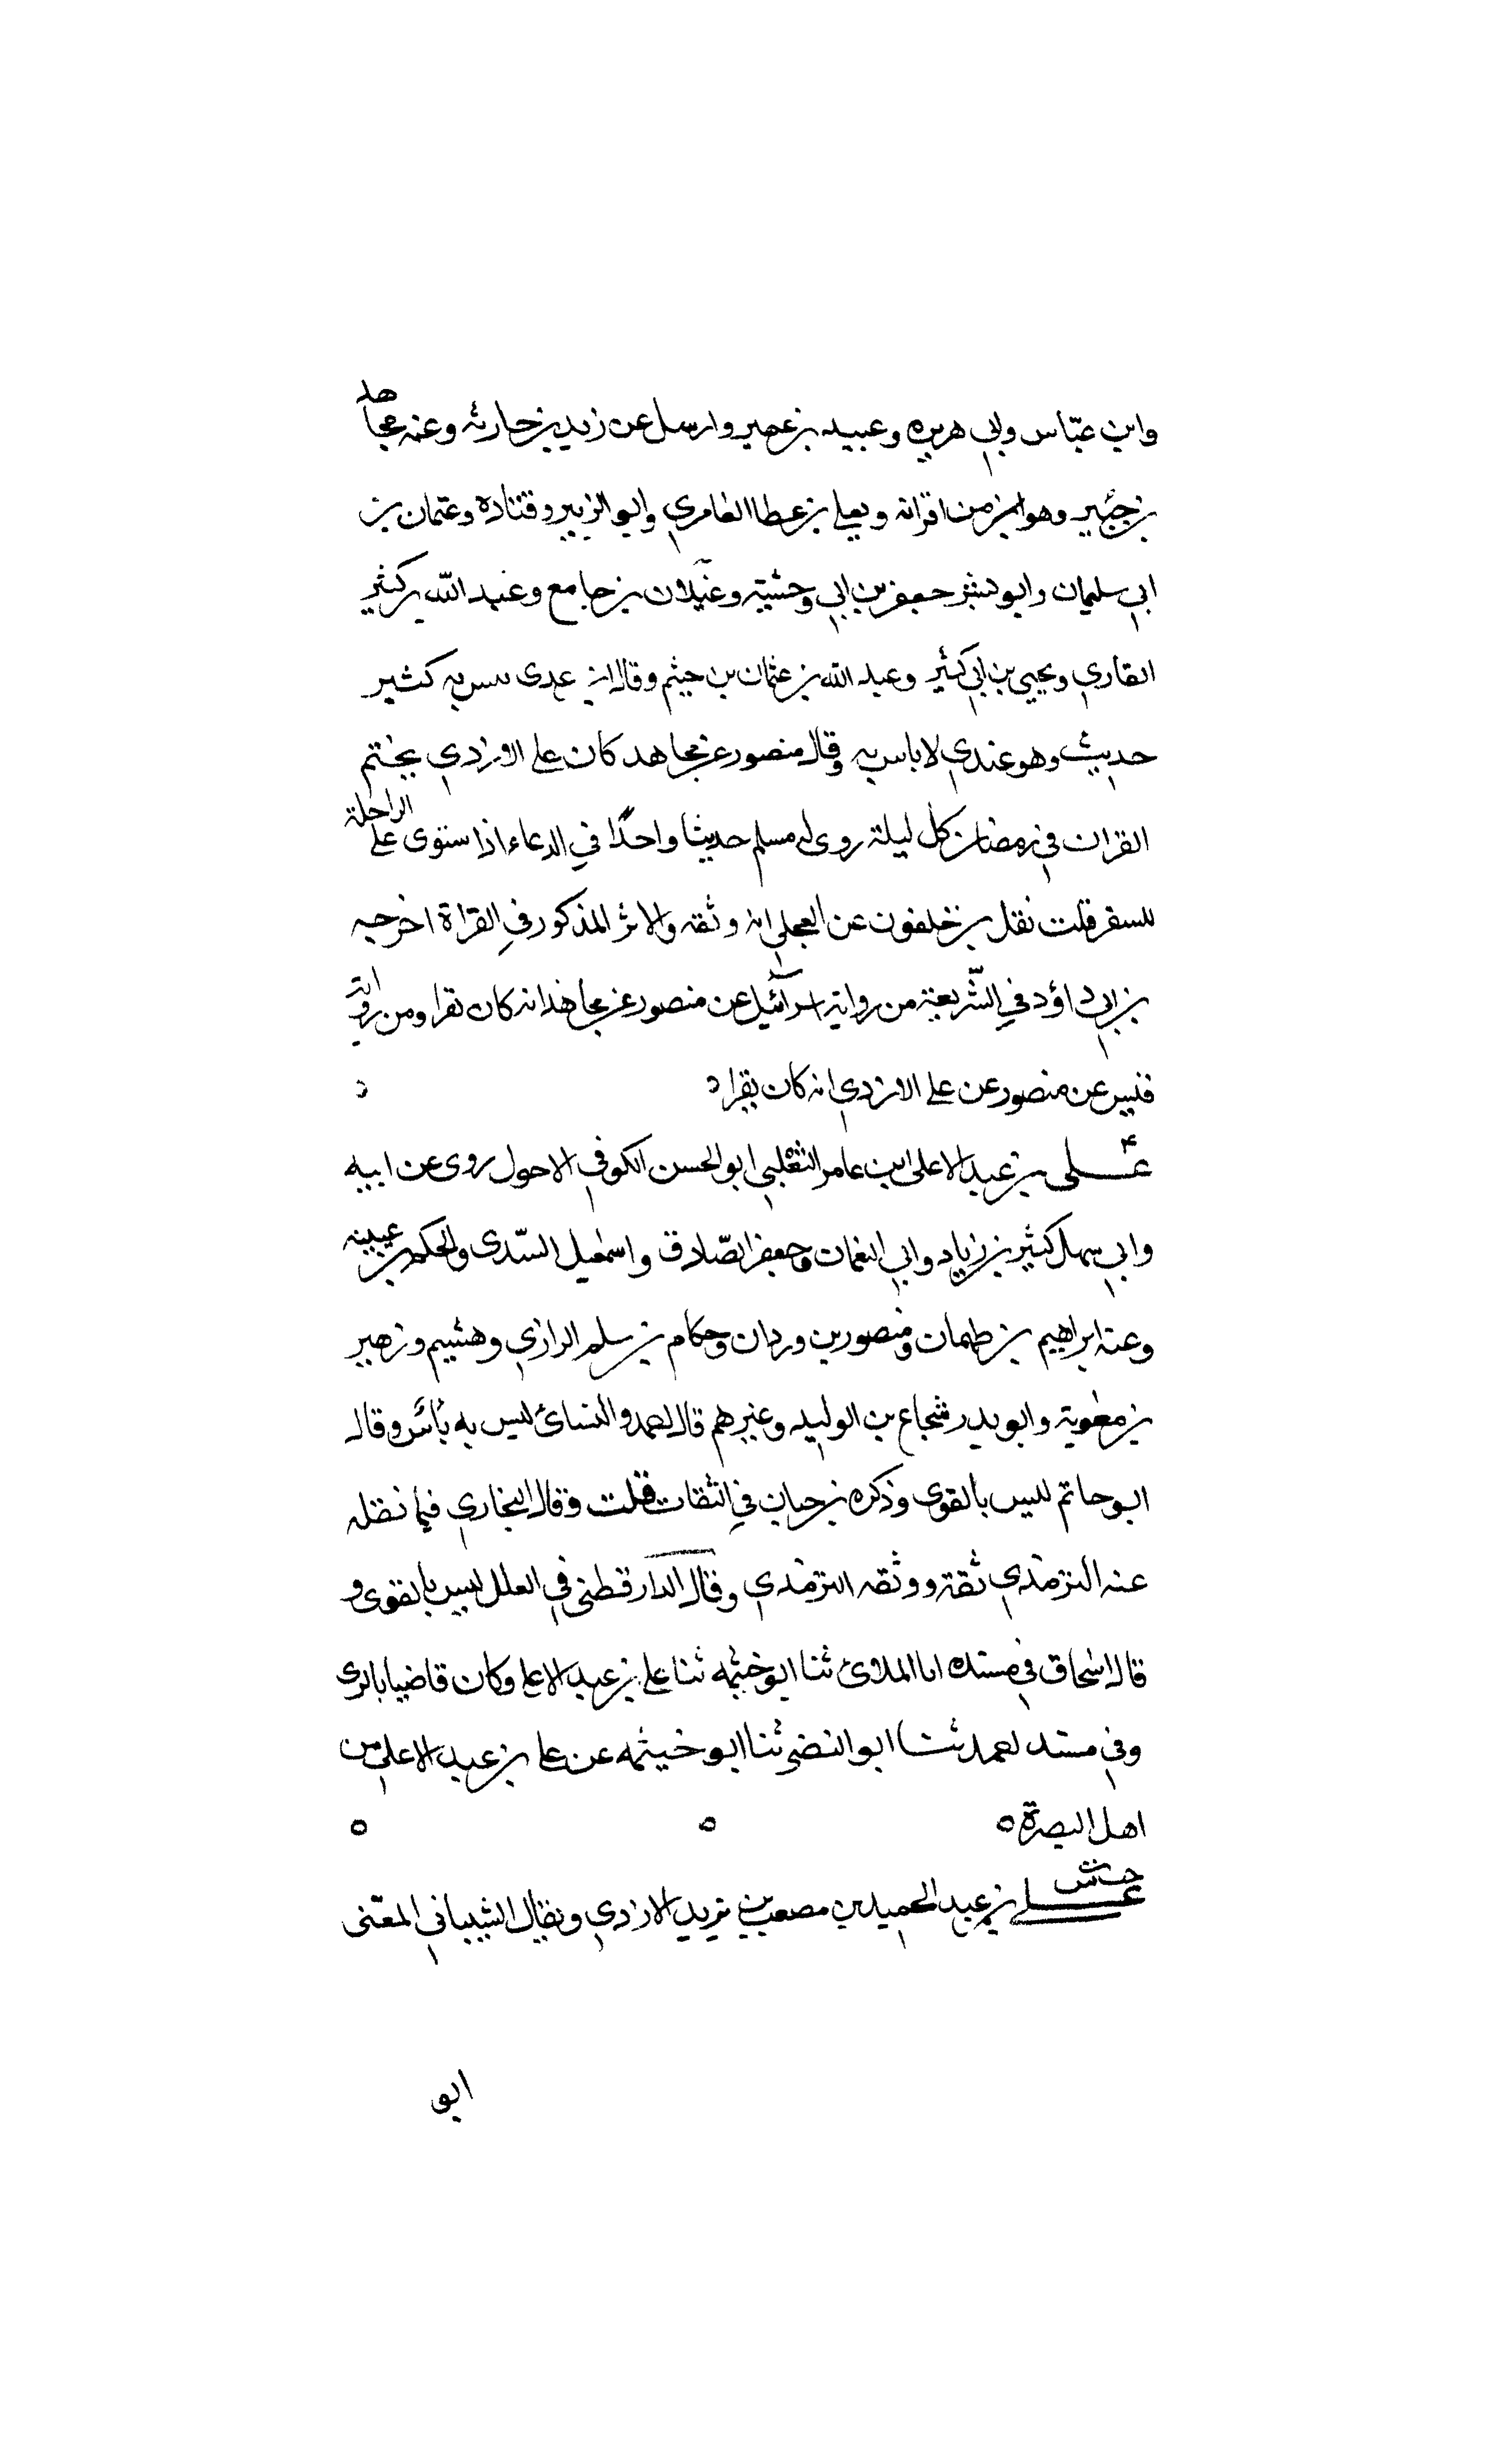 وابن عبّاس وابي هريره وعبيد بن عمير وارسل عن زيد بن حارثه وعنه مجاهد
بن جبير وهو من اقرانه ويعلى بن عطا العامري وابو الزبير وقتاده وعثمان بن
ابي سليمان وابو بشر جعفر بن ابي وحشية وغيلان بن جامع وعبد الله بن كثير
القاري ويحيي بن ابي كثير وعبد الله بن عثمان بن خيثم وقال ابن عدى ليس به كثير
حديث وهو عندي لا باس به وقال منصور عن مجاهد كان على الازدي يختم
القران في رمضان كل ليلة روى له مسلم حديثا واحدًا في الدعاء اذا ستوى على الراحلة
للسفر قلت نقل بن خلفون عن العجلي انه وثقه والاثر المذكور في القراة اخرجه
بن ابي داؤد في الشّريعة من رواية اسرآئيل عن منصور عن مجاهد انه كان يقرا ومن رواية
قيس عن منصور عن على الازدي انه كان يقرا
علي بن عبد الاعلى ابن عامر الثعلبي ابو الحسن الكوفي الاحول روى عن ابيه
وابي سهل كثير بن زياد وابي النعمان وجعفر الصّادق واسمعيل السّدى والحكم بن عيينه
وعنه ابراهيم بن طهمان ومنصور بن وردان وحكام بن سلم الرازي وهشيم وزهير
بن معوية وابو بدر شجاع بن الوليد وغيرهم قال احمد والنسائ ليس به بأس وقال
ابو حاتم ليس بالقوى وذكره بن حبان في الثقات قلت وقال البخاري فيما نقله
عنه الترمذي ثقة ووثقه الترمذي وقال الدارقطنى في العلل ليس بالقوى و
قال اسحاق في مسنده انا الملائ ثنا ابو خيثمه ثنا على بن عبد الاعلى وكان قاضيا بالرى
وفي مسند احمد ثنا ابو النضر ثنا ابو خيثمه عن على بن عبد الاعلى من
اهل البصرة
علي بن عبد الحميد بن مصعب بن يزيد الازدي ويقال الشيباني المعنى
ابو